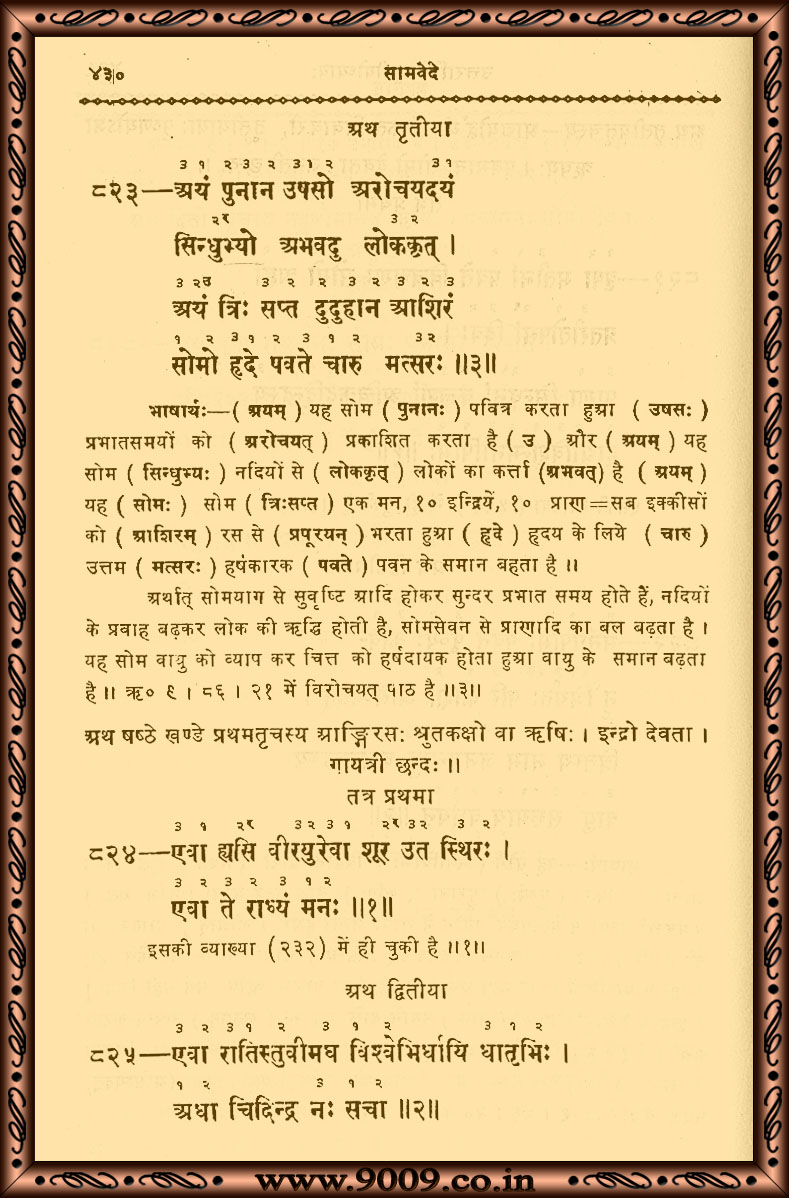 ४३० सामवेदे
अथ तृतीया
३ १ २ ३ २ ३१ २ ३ १
८२३—अयं पुनान उषसो अरोचयदयं
२र ३ २
सिन्धुभ्यो अभवदु लोककृत् ।
३ २उ ३ २ ३ २ ३ २ ३
अयं त्रिः सप्त दुदुहान आशिरं
१ २ ३ १ २ ३ १ २ ३ २
सोमो हृदे पवते चारु मत्सरः ॥३॥
भाषार्थः—( अयम् ) यह सोम ( पुनानः ) पवित्र करता हुआ ( उषसः )
प्रभातसमयों को ( अरोचयत् ) प्रकाशित करता है ( उ ) और ( अयम् ) यह
सोम ( सिन्धुभ्यः ) नदियों से ( लोककृत् ) लोकों का कर्त्ता (अभवत्) है ( अयम् )
यह ( सोमः ) सोम ( त्रिःसप्त ) एक मन, १० इन्द्रियें, १० प्राण=सब इक्कीसों
को ( आशिरम् ) रस से ( प्रपूरयन् ) भरता हुआ ( हृदे ) हृदय के लिये ( चारु )
उत्तम ( मत्सरः ) हर्षकारक ( पवते ) पवन के समान बहता है ॥
अर्थात् सोमयाग से सुवृष्टि आदि होकर सुन्दर प्रभात समय होते हैं, नदियों
के प्रवाह बढ़कर लोक की ऋद्धि होती है, सोमसेवन से प्राणादि का बल बढ़ता है ।
यह सोम वायु को व्याप कर चित्त को हर्षदायक होता हुआ वायु के समान बढ़ता
है ॥ ऋ० ९ । ८६ । २१ में विरोचयत् पाठ है ॥३॥
अथ षष्ठे खण्डे प्रथमतृचस्य आङ्गिरसः श्रुतकक्षो वा ऋषिः । इन्द्रो देवता ।
गायत्री छन्दः ॥
तत्र प्रथमा
३ १ २र ३ २ ३ १ २र ३ २ ३ २
८२४—एवा ह्यसि वीरयुरेवा शूर उत स्थिरः ।
३ २ ३ २ ३ १ २
एवा ते राध्यं मनः ॥१॥
इसकी व्याख्या (२३२) में ही चुकी है ॥१॥
अथ द्वितीया
३ २ ३ १ २ ३ १ २ ३ १ २
८२५—एवा रातिस्तुवीमघ विश्वेभिर्धायि धातृभिः ।
१ २ ३ १ २
अधा चिदिन्द्र नः सचा ॥२॥
www.9009.co.in